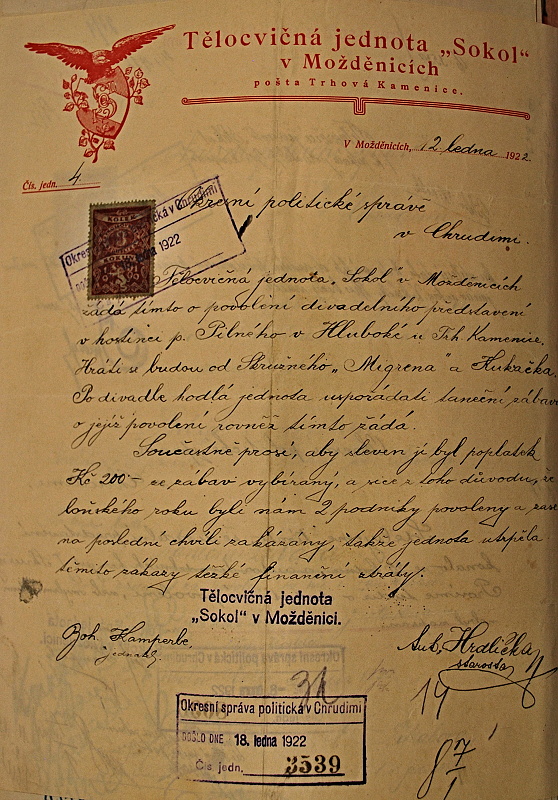 Tělocvičná jednota „Sokol“
v Možděnicích
pošta Trhová Kamenice.
V Možděnicích, 12 ledna 1922
Čís. jedn. 4
Okresní politické správě
v Chrudimi.
KOLEK
Okresní politická v Chrudimi
ledna 1922
Tělocvičná jednota „Sokol“ v Možděnicích
žádá tímto o povolení divadelního představení
v hostinci p. Pilného v Hluboké u Trh. Kamenice.
Hráti se budou od Stružného „Migrena“ a Kukačka.
Po divadle hodlá jednota uspořádati taneční zábavu
o jejíž povolení rovněž tímto žádá.
Současně prosí, aby sleven jí byl poplatek
Kč 200– ze zábav vybíraný, a sice z toho důvodu, že
loňského roku byli nám 2 podniky povoleny a zase
na poslední chvíli zakázány, takže jednota utrpěla
těmito zákazy těžké finanční ztráty.
Tělocvičná jednota
„Sokol“ v Možděnici.
Joh. Kamperle,
jednatel.
Ant. Hrdlička
starosta
19
Okresní správa politická v Chrudimi
DOŠLO DNE 18. ledna 1922
Čís. jedn. 3539